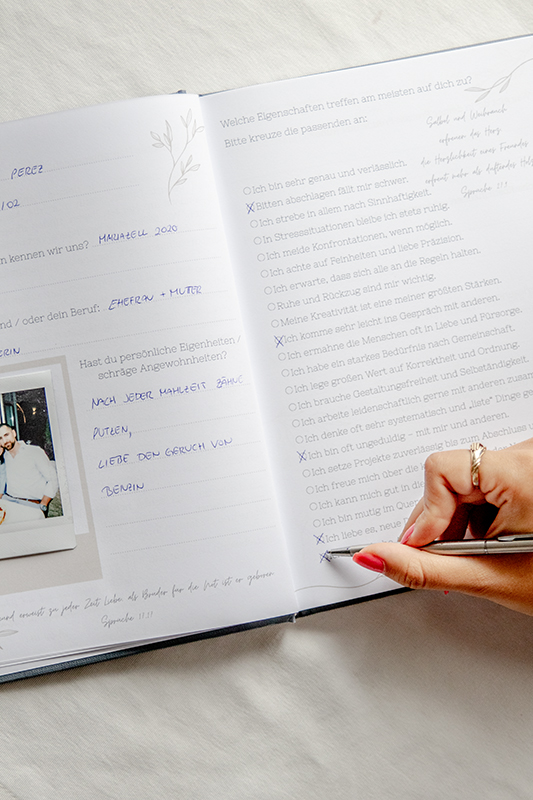 PEREZ
/02
n kennen wir uns? MARIAZELL 2020
nd / oder dein Beruf: EHEFRAU + MUTTER
ERIN
Hast du persönliche Eigenheiten /
schräge Angewohnheiten?
NACH JEDER MAHLZEIT ZÄHNE
PUTZEN,
LIEBE DEN GERUCH VON
BENZIN
und erweist zu jeder Zeit Liebe als Bruder für die Not ist er geboren
Sprüche 17,17
Welche Eigenschaften treffen am meisten auf dich zu?
Bitte kreuze die passenden an:
Salböl und Weihrauch
erfreuen das Herz
die Herzlichkeit eines Freundes
erfreut mehr als duftendes Holz
Sprüche 27,9
Ich bin sehr genau und verlässlich.
Bitten abschlagen fällt mir schwer.
Ich strebe in allem nach Sinnhaftigkeit.
In Stresssituationen bleibe ich stets ruhig.
Ich meide Konfrontationen, wenn möglich.
Ich achte auf Feinheiten und liebe Präzision.
Ich erwarte, dass sich alle an die Regeln halten.
Ruhe und Rückzug sind mir wichtig.
Meine Kreativität ist eine meiner größten Stärken.
Ich komme sehr leicht ins Gespräch mit anderen.
Ich ermahne die Menschen oft in Liebe und Fürsorge.
Ich habe ein starkes Bedürfnis nach Gemeinschaft.
Ich lege großen Wert auf Korrektheit und Ordnung.
Ich brauche Gestaltungsfreiheit und Selbständigkeit.
Ich arbeite leidenschaftlich gerne mit anderen zusam
Ich denke oft sehr systematisch und „liste" Dinge ge
Ich bin oft ungeduldig – mit mir und anderen.
Ich setze Projekte zuverlässig bis zum Abschluss u
Ich freue mich über die
Ich kann mich gut in die
Ich bin mutig im Que
Ich liebe es, neue